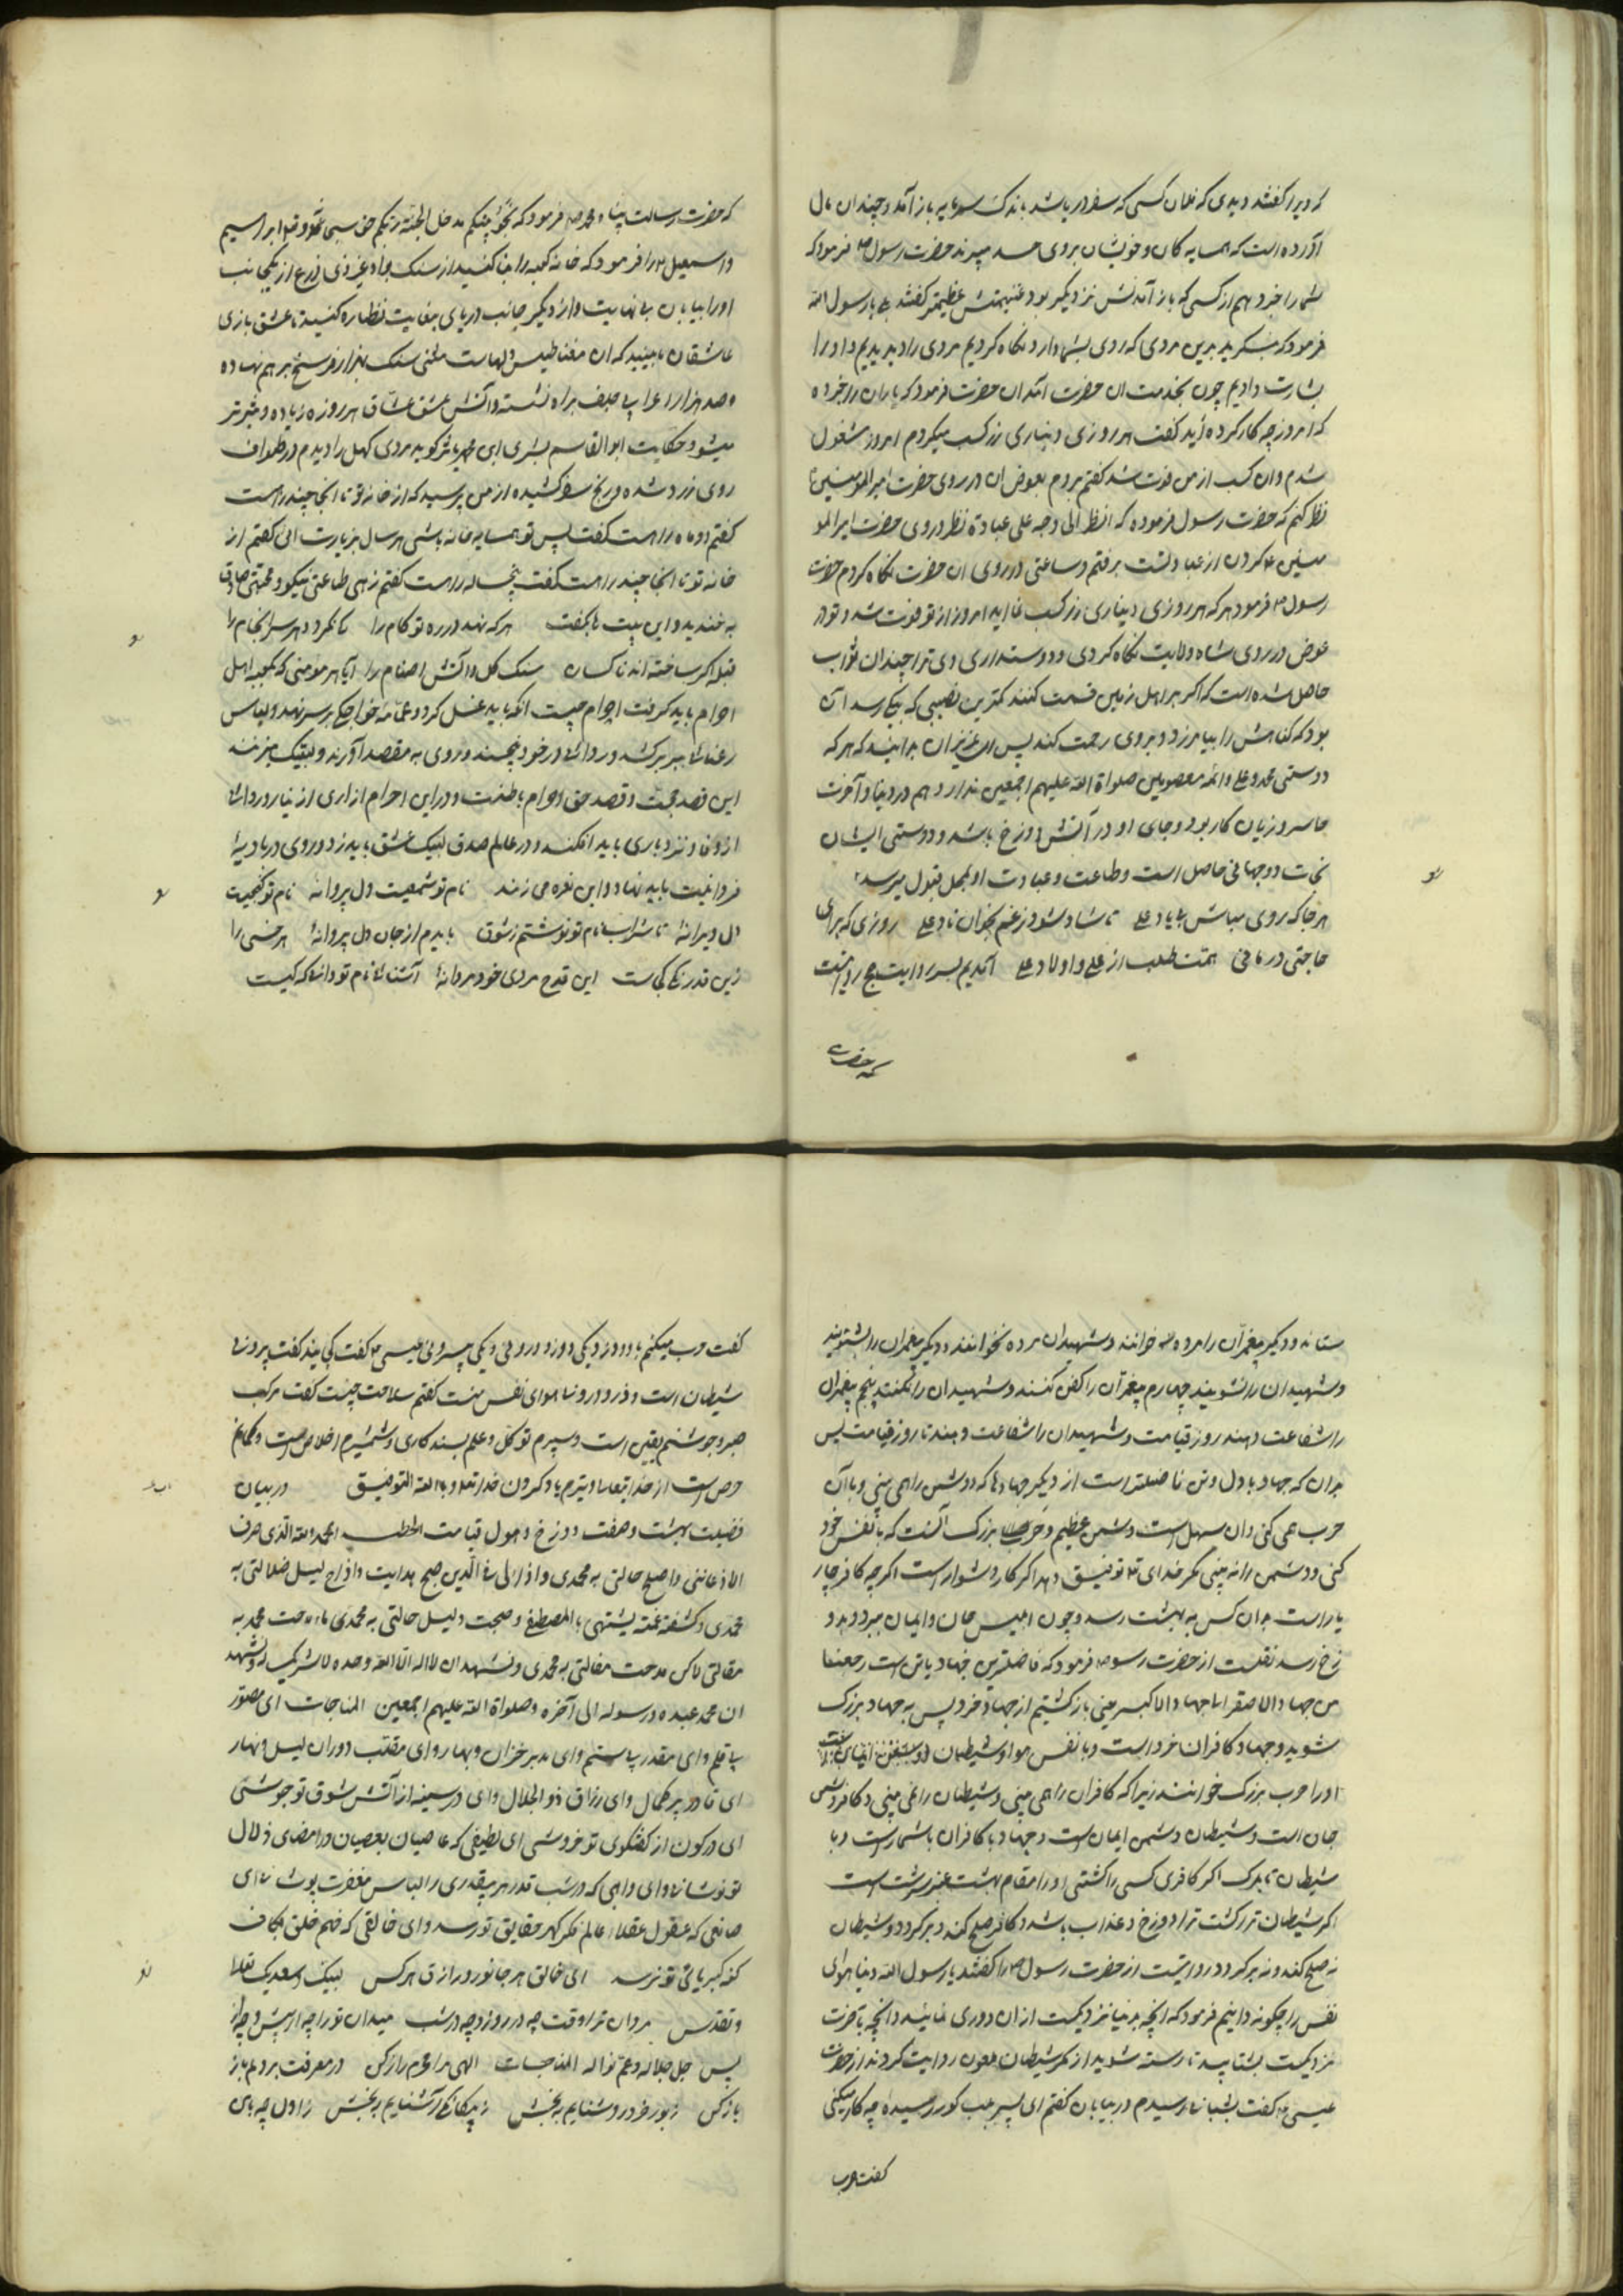 که دیرا گفتند دیدی که فلان کسی که سفر دریا شد باندک سرمایه باز آمد و چندان مال
آورده است که همسایه کان و خویشان بروی حسد میبرند حضرت رسول ص فرمود که
شما را خبر دهم از کسی که باز آمدنش نزدیکتر بود و غنیمتش عظیمتر گفتند بلی یا رسول الله
فرمود که بنگرید بدین مردی که روی بشما دارد نگاه کردیم مردی را دیدیم و او را
بشارت دادیم چون بخدمت ان حضرت آمد ان حضرت فرمود که یاران را خبر ده
که امروز چه کار کرده‌ٔ گفت هر روزی دیناری زر کسب میکردم امروز مشغول
شدم وان کسب از من فوت شد گفتم بروم بعوض ان در روی حضرت امیر المومنین ع
نظر کنم که حضرت رسول فرموده که انظر الی وجه علی عبادة نظر در روی حضرت امیر المو
منین ع کردن از عبادتست برفتم و ساعتی در روی ان حضرت نگاه کردم حضرت
رسول ص فرمود هر که هر روزی دیناری زر کسب نماید امروز از تو فوت شد و تو در
عوض در روی شاه ولایت نگاه کردی و دوستداری وی ترا چندان ثواب
حاصل شده است که اگر بر اهل زمین قسمت کنند کمترین نصیبی که بیکی رسد آن
بود که گناهش را بیامرزد و بروی رحمت کند پس ای عزیزان بدانید که هر که
دوستی محمد و علی و ائمه معصومین صلواة الله علیهم اجمعین ندارد هم در دنیا و آخرت
خاسر و زیان کار بود و جای او در آتش دوزخ باشد و دوستی ایشان
نجات دوجهانی حاصل است و طاعت و عبادت او بمحل قبول میرسد
هر جا که روی مباش بی یاد علی تا شاد شود ز غم بخوان ناد علی روزی که برای
حاجتی در مانی همت طلب از علی و اولاد علی آمدیم بسر روایت حج
که حضرت
که حضرت رسالت پناه محمد ص فرمود که
واسمعیل ع را فرمود که خانه کعبه را بنا کنید از سنک بواد غیر ذی زرع از یکجانب
او را بیابان بی نهایت و از دیگر جانب دریای بیغایت نظاره کنید تا عشق بازی
عاشقان ببینید که ان مغناطیس دلهاست مشتی سنک هزار فرسخ بر هم نهاده
وصد هزار اعرابی بر راه نشسته و آتش عشق عشاق هر روزه زیاده و تیزتر
میشود حکایت ابو القاسم بشری ابن محمد یاسر گوید مردی کهل را دیدم در طواف
روی زرد شده و رنج سفر کشیده از من پرسید که از خانه تو تا انجا چند راهست
گفتم دو ماه راهست گفت پس تو همسایه خانه باشی هر سال بزیارت ائی گفتم از
خانه تو تا انجا چند راهست گفت پنجساله راهست گفتم زهی طاعتی نیکو و محبتی صادق
بخندید و این بیت بگفت هر که نهد در ره تو کام را کی نگرد دهر سرانجام را
قبله اگر ساخته اند ناکسان سنک گل و آتش اصنام را آیا هر مومنی که بکعبه اهل
احرام باید گرفت احرام چیست انکه باید غسل کرد و عمامه خواجگی بر سر نهد و لباس
رعنائی بیر بر کشد و ردائی در خود پیچند و روی به مقصد آورند و لبیک میزنند
این قصد حج است و قصد حق احرام باطنست و در این احرام ازاری از نیاز و ردائی
از وفا و بردباری باید افکند و در عالم صدق لبیک عشق باید زد و روی در بادیهٔ
فردانیت باید نهاد و این نعره می زنند نام تو شمعیست دل پروانهٔ نام تو گنجیست
دل ویرانهٔ تا شراب نام تو نوشتم ز شوق پا بدم از جان و دل پروانهٔ هر خسی را
زین قدر کی کی است این قدح مردی خورد مردانهٔ آشنائی نام تو داند که کیست
ستانه و دیگر پیغمبرآن را مرده خوانند و شهیدان مرده نخوانند و دیگر پیغمبران را بشویند
و شهیدان را نشویند چهارم پیغمبرآن را کفن کنند و شهیدان را نکنند پنجم پیغمبران
را شفاعت دهند روز قیامت و شهیدان را شفاعت دهند تا روز قیامت پس
بدان که جهاد با دل و تن فاضلتر است از دیگر جهادها که دوشمن را همی بینی و با آن
حرب همی کنی وان سهل است و دشمن عظیم و حرب بزرک آنست که با نفس خود
کنی و دوشمن را نه بینی مگر خدای تعا توفیق دهد اگر کار دشوار است اگرچه کافر چار
یار است بدان کس به بهشت رسد و چون ابلیس جان و ایمان ببرد و بدو
زخ رسد نقلست از حضرت رسول ص فرمود که فاضلترین جهاد با تن است رجعنا
من جهاد الاصغر الی جهاد الاکبر یعنی بازگشتیم از جهاد خرد پس به جهاد بزرک
شوید و جهاد کافران خرد است و با نفس هوا و شیطان
او را حرب بزرک خوانند زیرا که کافران را همی بینی و شیطان را نمی بینی و کافر دشمن
جان است و شیطان دشمن ایمان است و جهاد با کافران باشمار است و با
شیطان تا بمرک اگر کافری کسی را کشتی او را مقام بهشت عنبر سرشت است
اگر شیطان ترا کشت ترا دوزخ و عذاب باشد و کافر صلح کند و برگردد و شیطان
نه صلح کند و نه برگردد و روایتست از حضرت رسول ص را گفتند یا رسول الله دنیا هوائی
نفس را چگونه دانیم فرمود که انچه بدنیا نزدیکست ازان دوری نمائید و انچه بآخرت
نزدیکست بشتابید تا رسته شوید از مکر شیطان ملعون روایت کردند از حضرت
عیسی ع گفت بشبانی رسیدم در بیابان گفتم ای پسر عجب کور رسیدهٔ چه کار میکنی
گفت حرب
گفت حرب میکنم با دو دزد یکی دوزد درونی و یکی بیرونی عیسی ع گفت کی اند گفت بیرونی
شیطان است و دزد درونی هوای نفس منست گفتم سلاحت چیست گفت مرکب
صبر و جوشنم یقین است و سپرم توکل و علم بسند کاری و شمشیرم اخلاص است و کمانم
حرص است از خدا بتعالی و تیرم یاد کردن خدایتعالی و بالله التوفیق در بیان
فضیلت بهشت و صفت دوزخ و هول قیامت الخطب الحمد لله الذی صرف
محمدی و کشفت غمته
ان محمد عبده و رسوله الی آخره و صلواة الله علیهم اجمعین المناجات ای مصور
بی قلم وای مقدر بی ستم وای مدبر خزان و بهار وای مقلب دوران لیل و نهار
ای قادر پر کمال وای رزاق ذو الجلال وای در سینه از آتش شوق تو جوشی
ای در کون از گفتگوی تو خروشی ای لطیفی که عاصیان بعصیان در امضای زلال
تو نوشانی وای واهبی که در شب قدر هر بیقدری را لباس مغفرت پوشانی ای
صانعی که عقول عقلاء عالم فکر بکهر حقایق تو رسد وای خالقی که فهم خلق بکاف
کنه کبریائی تو نرسد ای خالق هر جانور و رازق هر کس لبیک وسعدیک تعلا
وتقدس مردان ترا وقت چه در روز و چه در شب میدان تو را چه از پیش و چه از
پس جل جلاله و عم نواله المناجات الهی مرا محرم راز کن در معرفت بر دلم باز
باز کن ز نور خود روشنایم ببخش ز بیکانکی آشنایم ببخش